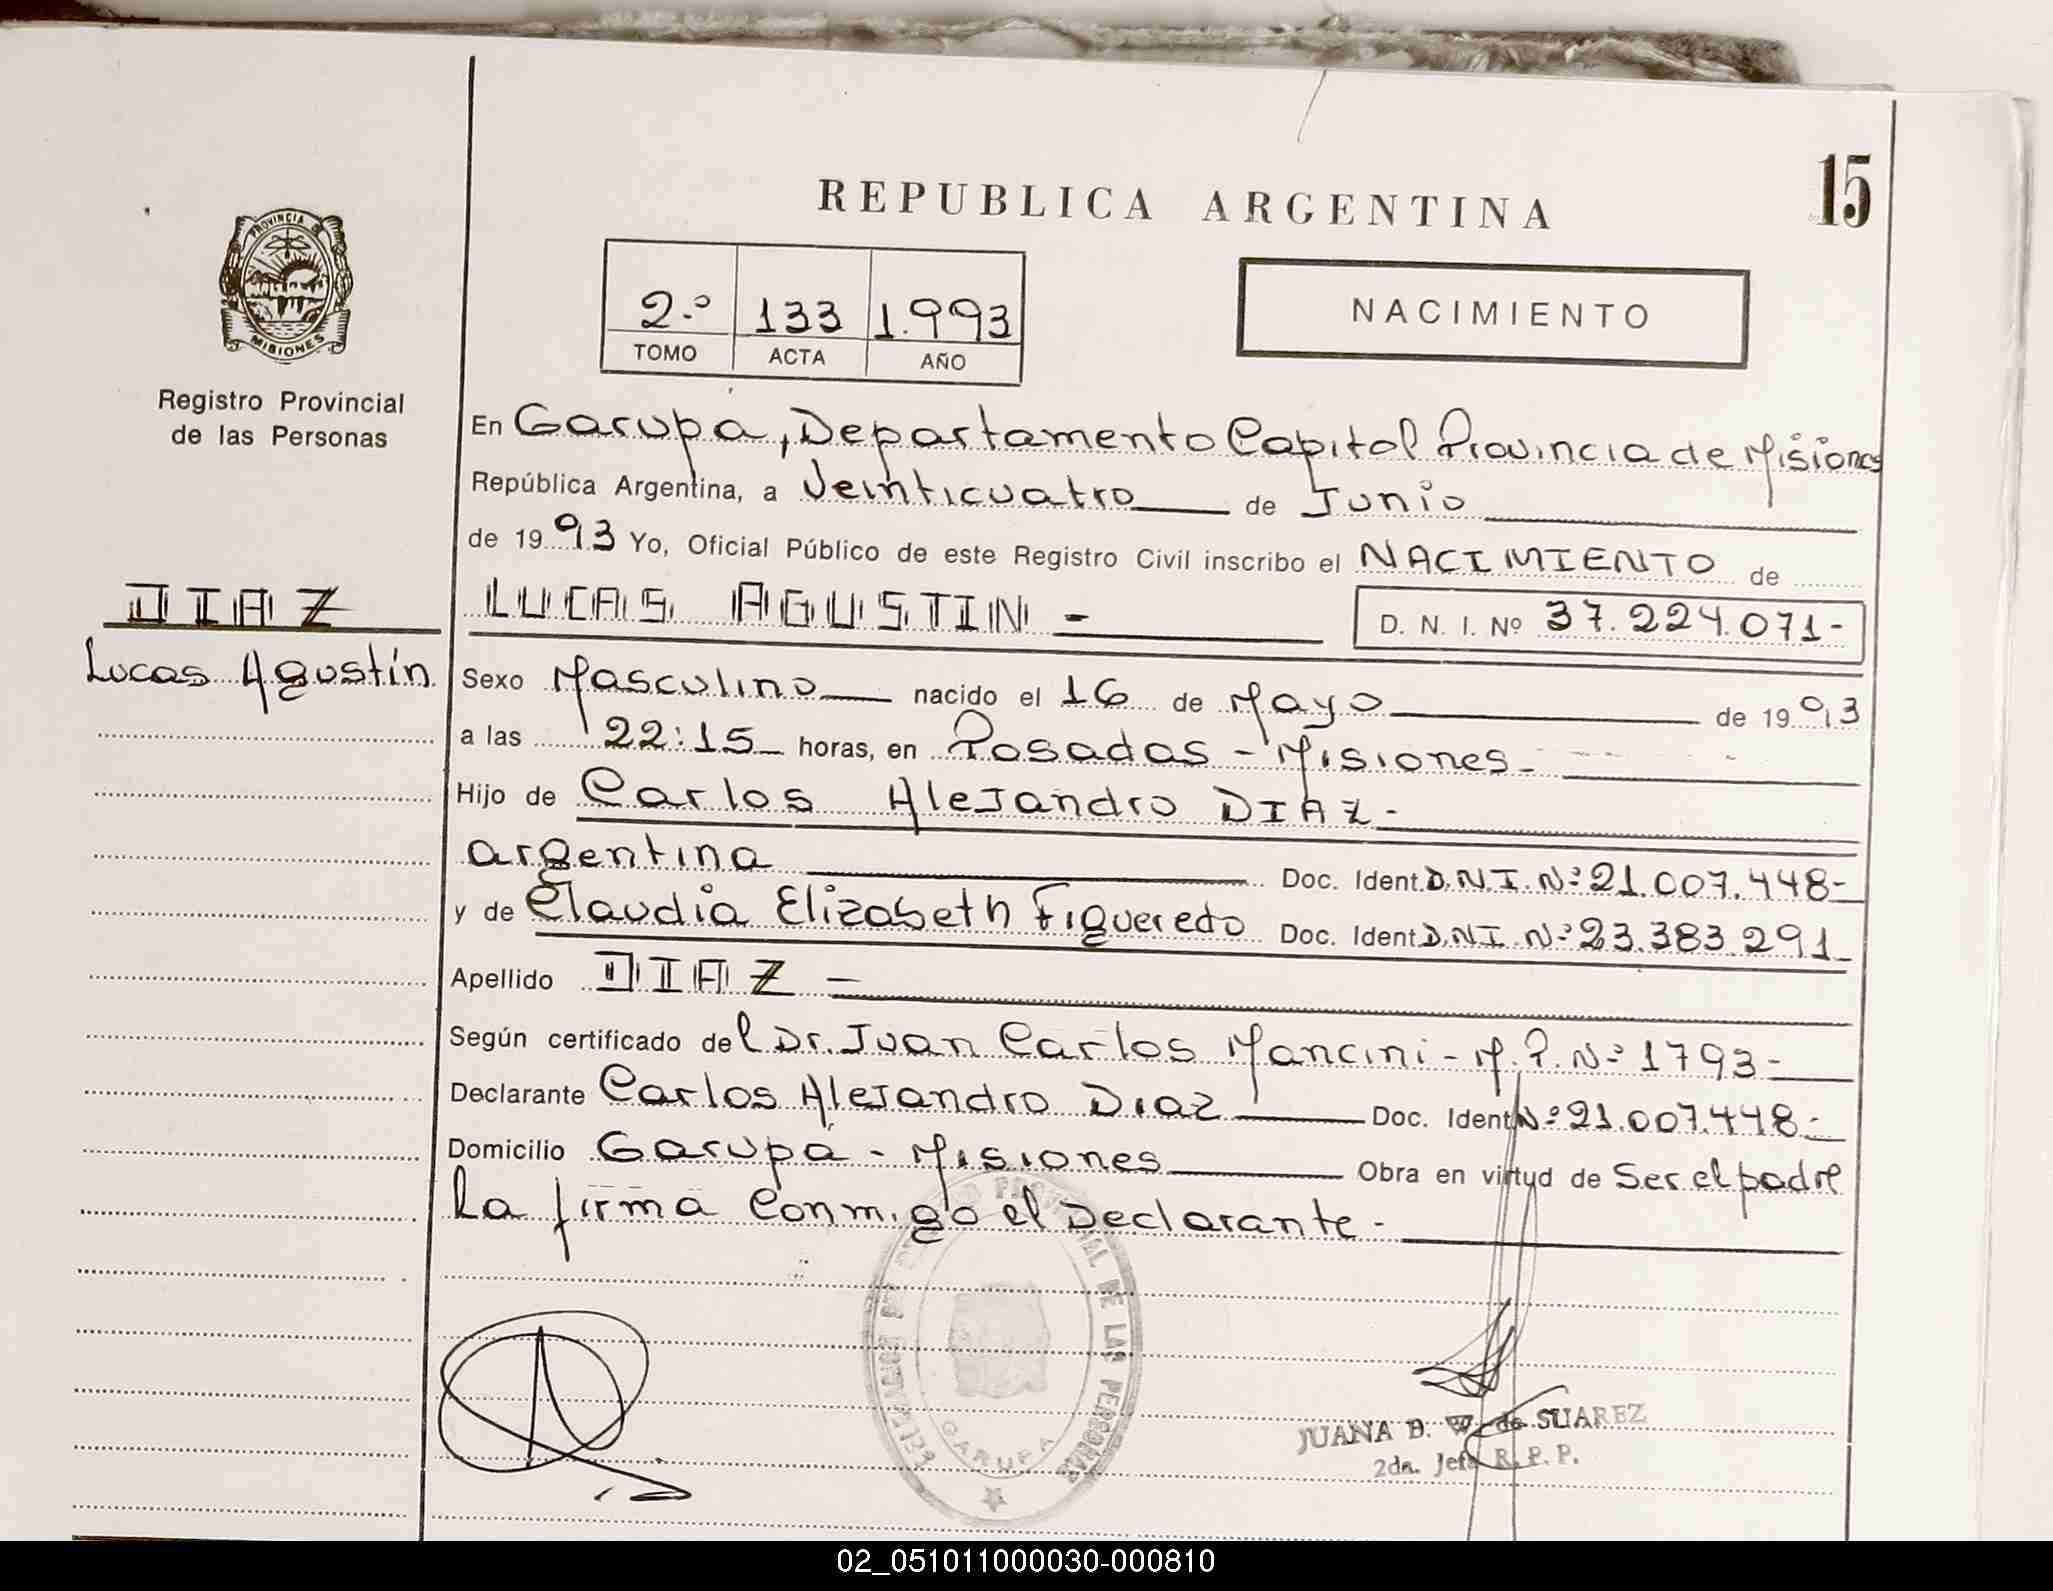 15
REPUBLICA ARGENTINA
PROVINCIA DE
MISIONES
2.º 133 1.993
TOMO ACTA AÑO
NACIMIENTO
Registro Provincial
de las Personas
En Garupa, Departamento Capital Provincia de Misiones
República Argentina, a Veinticuatro de Junio
de 1993 Yo, Oficial Público de este Registro Civil inscribo el NACIMIENTO de
DIAZ
Lucas Agustín
LUCAS AGUSTIN -
D. N. I. Nº 37.224.071-
Sexo Masculino nacido el 16 de Mayo de 1993
a las 22:15 horas, en Posadas - Misiones-
Hijo de Carlos Alejandro DIAZ-
argentina Doc. Ident. D.N.I. Nº 21.007.448-
y de Claudia Elizabeth Figueredo Doc. Ident. D.N.I. Nº 23.383.291-
Apellido DIAZ -
Según certificado del Dr. Juan Carlos Mancini - M.P. Nº 1793-
Declarante Carlos Alejandro Diaz Doc. Ident Nº 21.007.448-
Domicilio Garupa - Misiones Obra en virtud de Ser el padre
La firma Conmigo el Declarante-
PROVINCIAL DE LAS PERSONAS
GARUPA
JUANA B. W. de SUAREZ
2da. Jefe R. P. P.
02_051011000030-000810